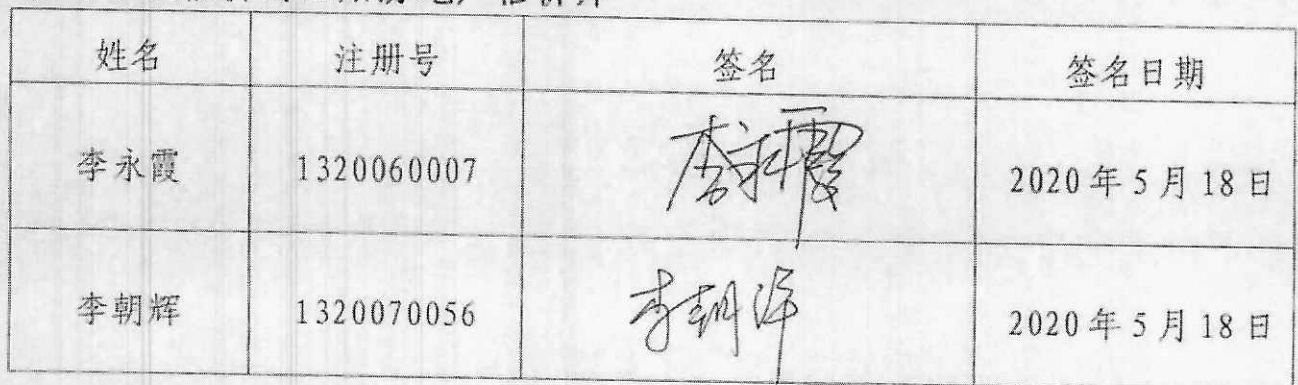 姓名 注册号 签名 签名日期
李永霞 1320060007 李永霞 2020年5月18日
李朝辉 1320070056 李朝辉 2020年5月18日